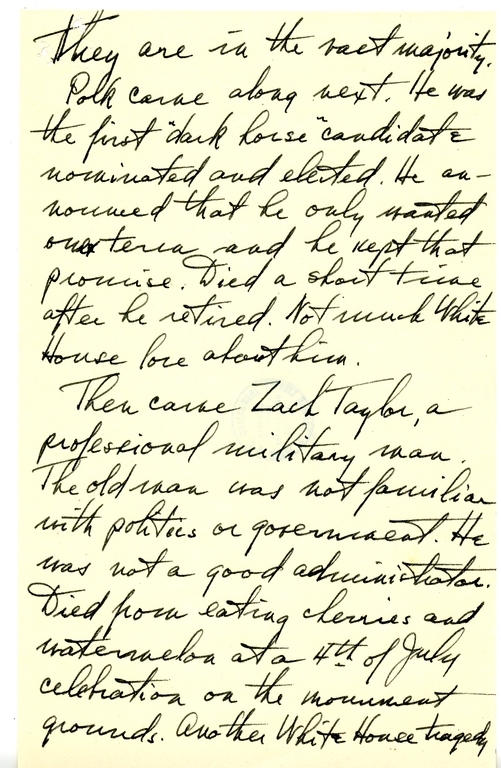 They are in the vast majority.
Polk came along next. He was
the first "dark horse" candidate
nominated and elected. He an-
nounced that he only wanted
one term and he kept that
promise. Died a short time
after he retired. Not much White
House lore about him.
Then came Zach Taylor, a
professional military man.
The old man was not familiar
with politics or government. He
was not a good administrator.
Died from eating cherries and
watermelon at a 4th of July
celebration on the monument
grounds. Another White House tragedy